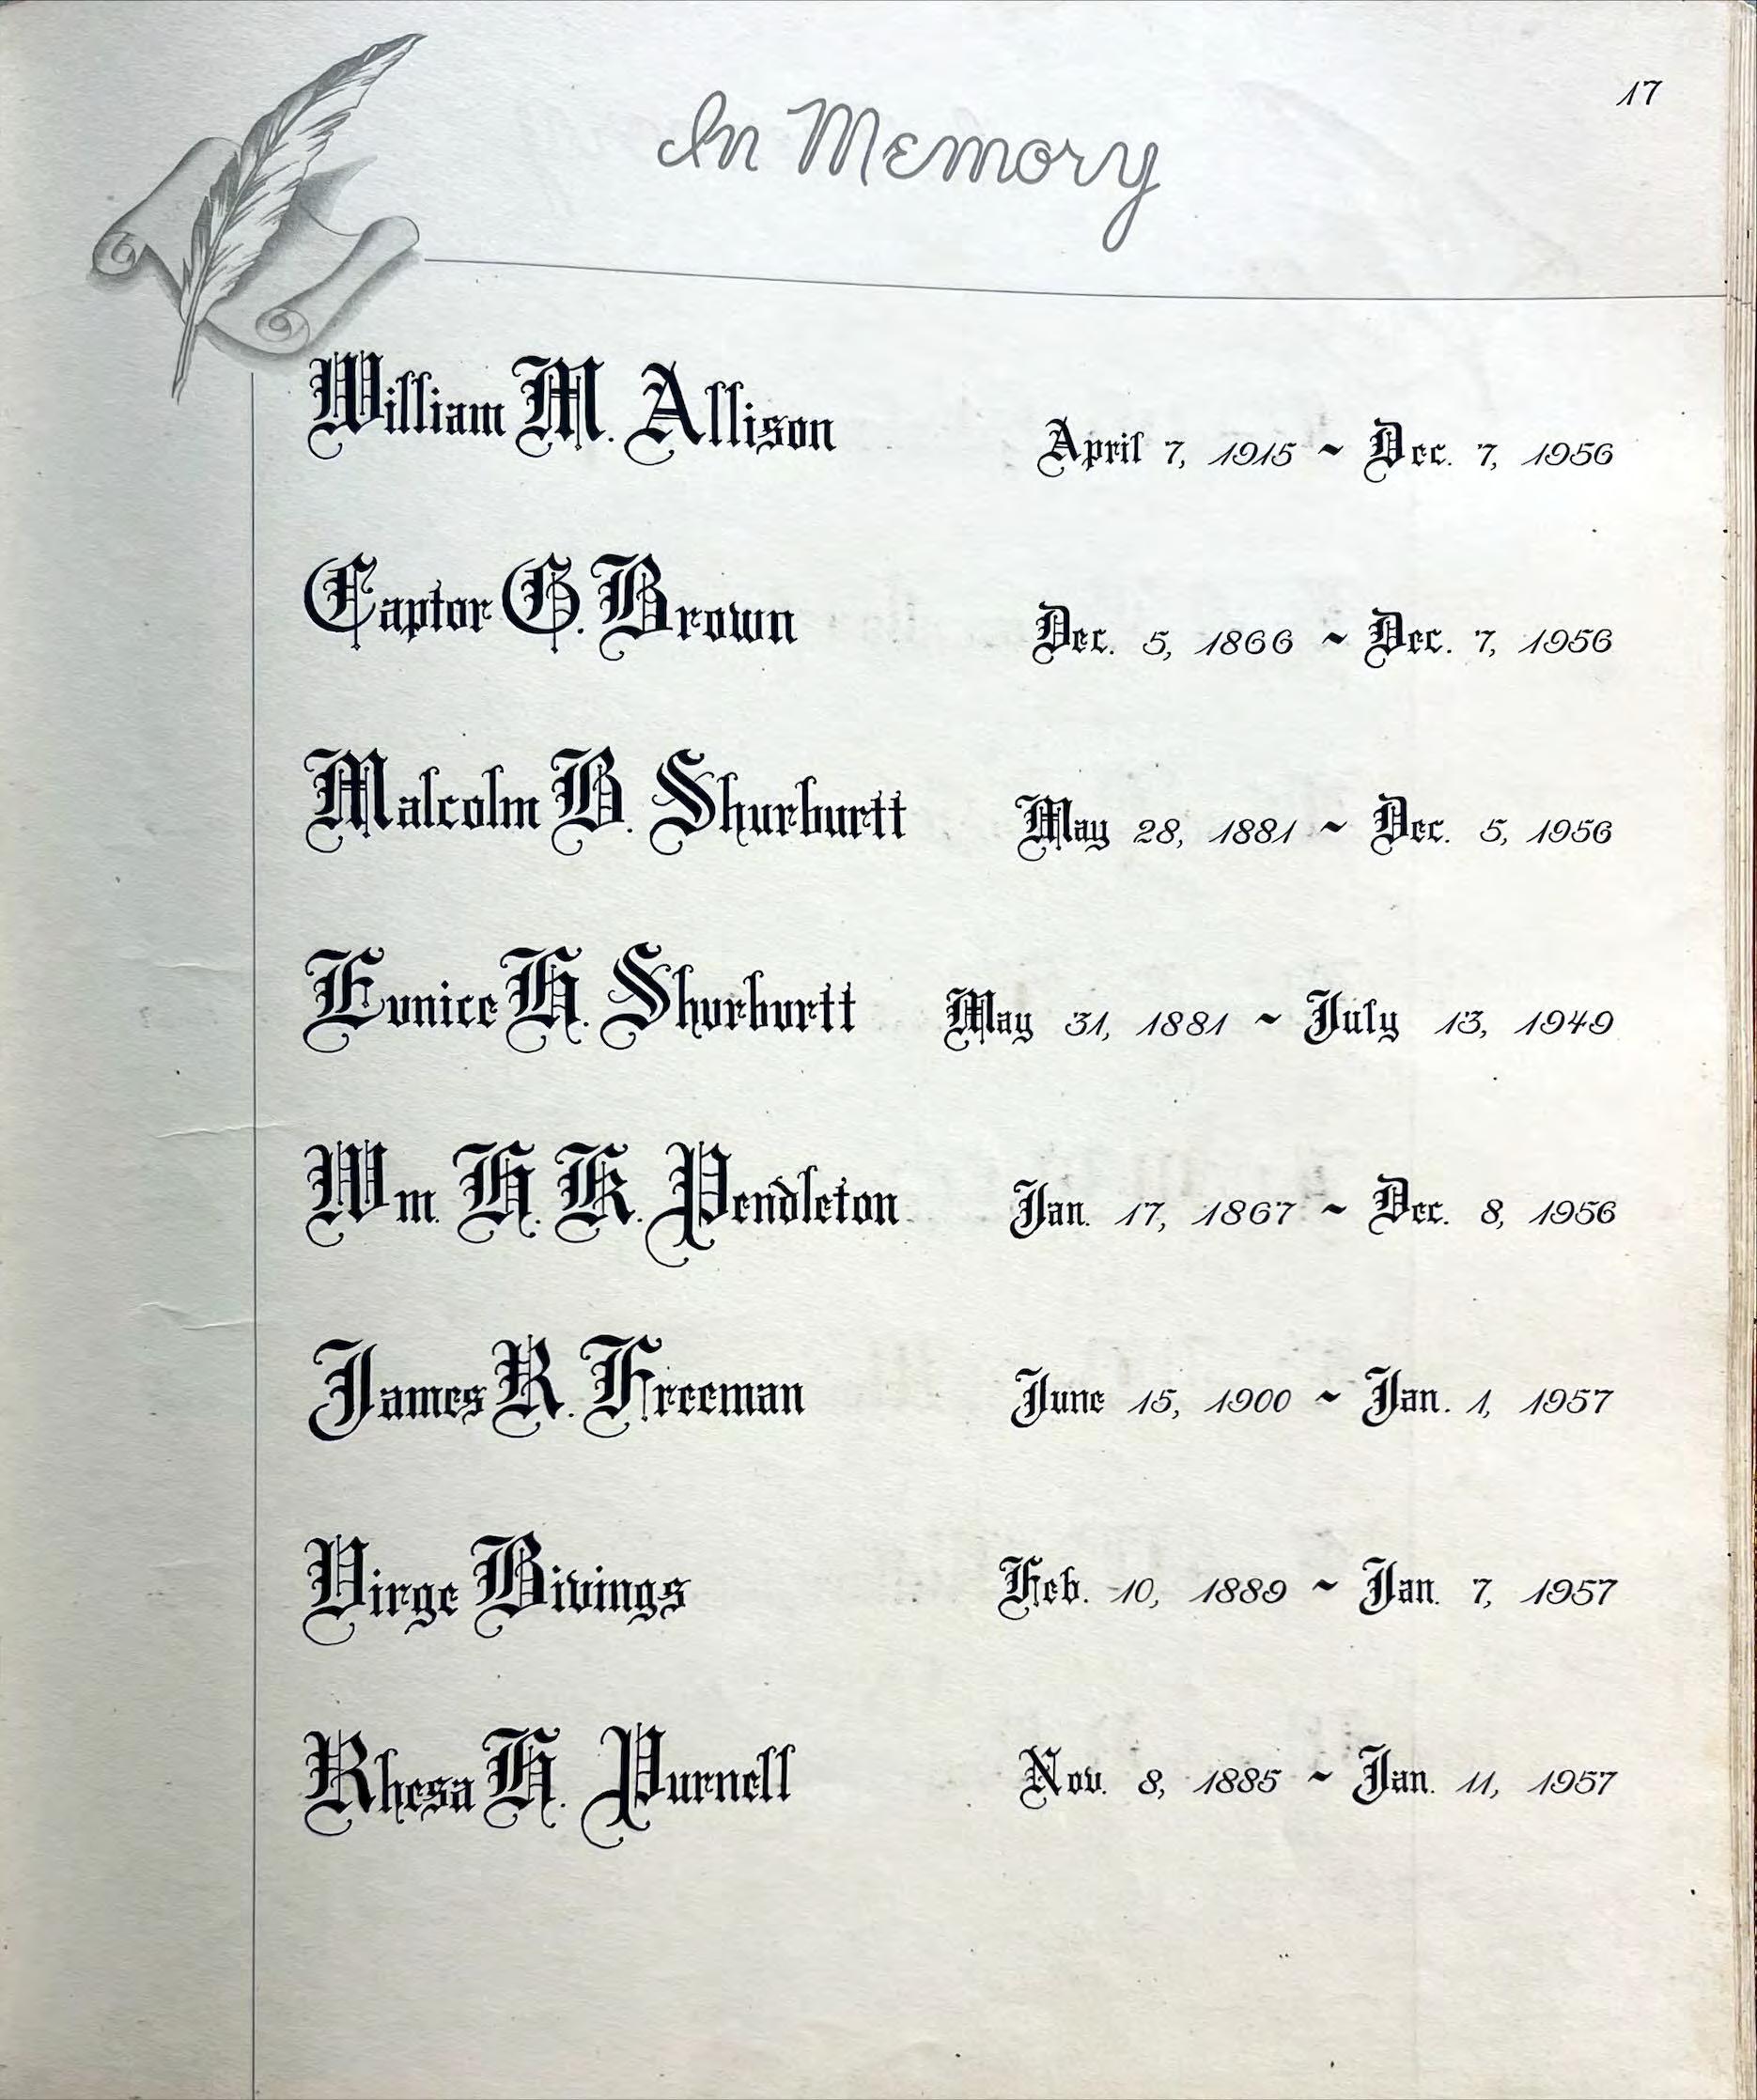 17
In Memory
William M. Allison April 7, 1915 ~ Dec. 7, 1956
Captor G. Brown Dec. 5, 1866 ~ Dec. 7, 1956
Malcolm B. Shurburtt May 28, 1881 ~ Dec. 5, 1956
Eunice H. Shurburtt May 31, 1881 ~ July 13, 1949
Wm. H. K. Pendleton Jan. 17, 1867 ~ Dec. 8, 1956
James R. Freeman June 15, 1900 ~ Jan. 1, 1957
Virge Bivings Feb. 10, 1889 ~ Jan. 7, 1957
Rhesa H. Purnell Nov. 8, 1885 ~ Jan. 11, 1957